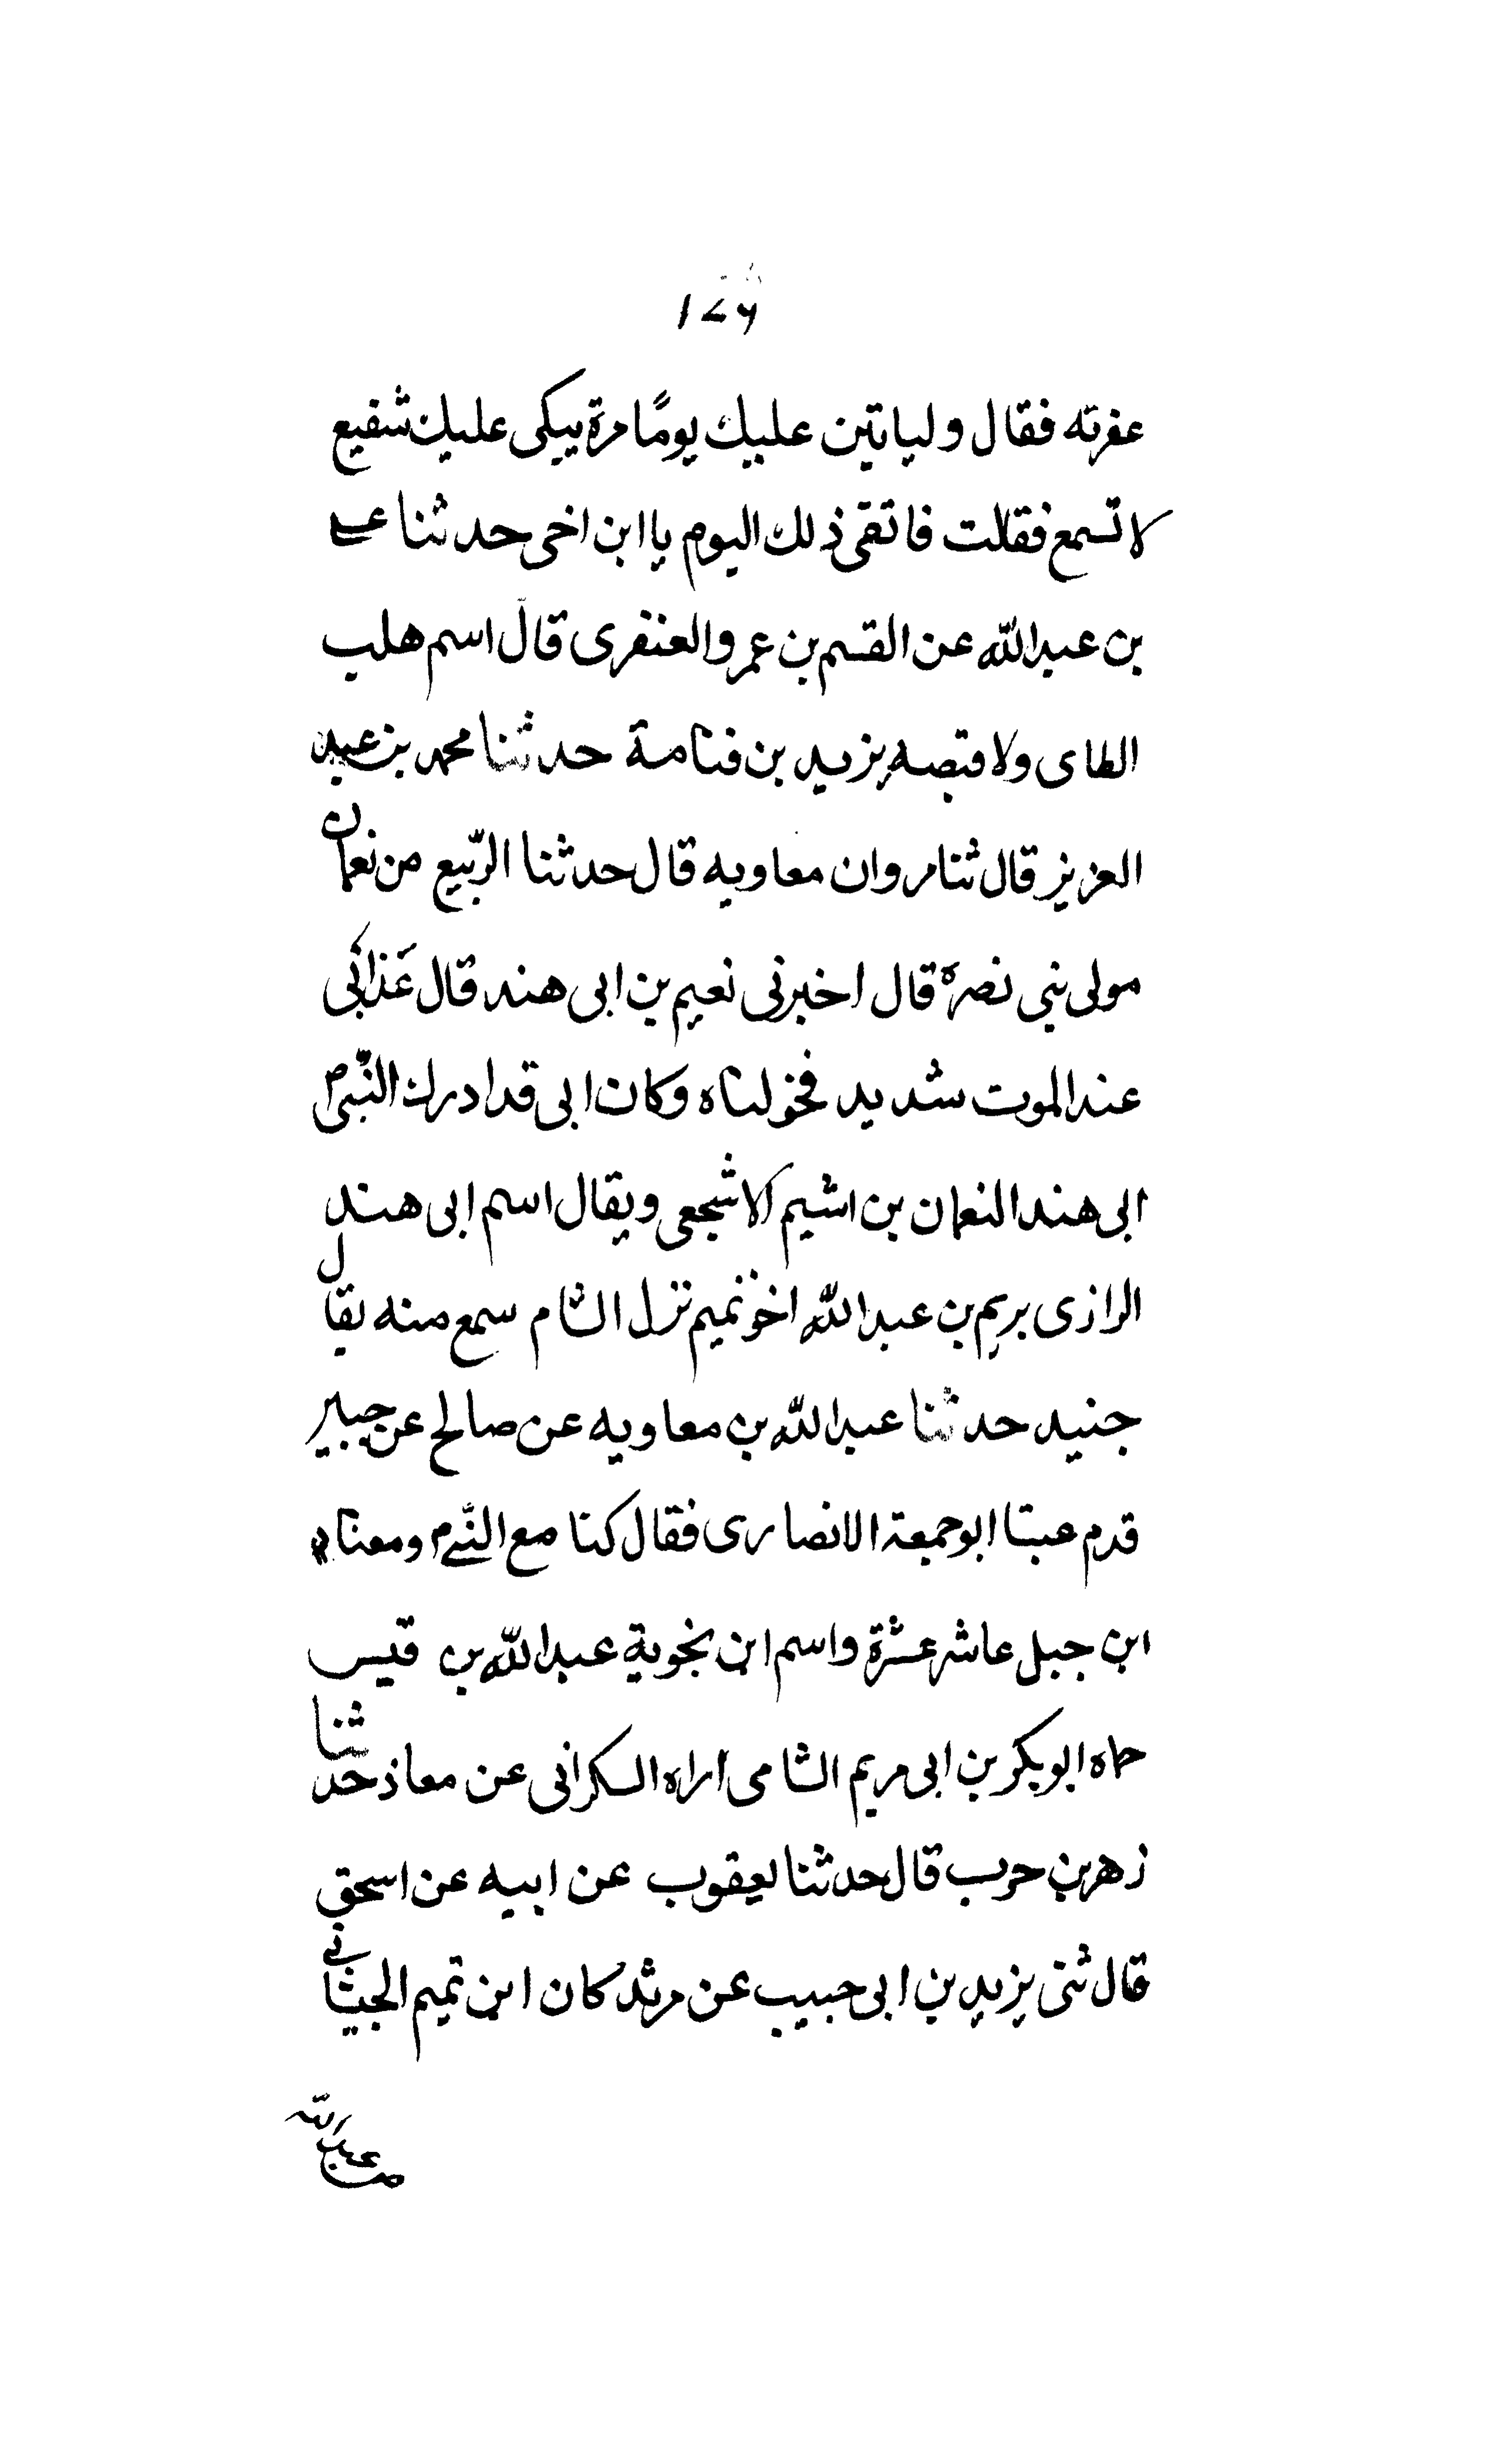 ١٧٩
عفرته فقال وليا تين عليك يومًا مرة يبكى عليك شفيع
لا تسمع فقلت فاتقى ذلك اليوم يا ابن اخى حدثنا على
بن عبدالله عن القسم بن عمرو العنقرى قال اسم هلب
الطاى ولا قبصه يزيد بن قنامة حدثنا محمد بن عبد
العزيز قال ثنا مروان معاويه قال حدثنا الربّيع من نعمان
مولى بنى نصره قال اخبرنى نعيم بن ابى هند قال
عند الموت شديد وكان ابى قد ادرك النبى ص
ابى هند النعمان بن اشيم الاشجعى ويقال اسم ابى هند
الرازى بريم بن عبدالله اخو تميم نزل الشام سمع منه يقال
جنيد حدثنا عبدالله بن معاويه عن صالح عن جبير
قدم عبتا ابو جمعة الانصارى فقال كنا مع النبى م ومعناه
ابن جبل عاشر عشرة واسم ابن بخوية عبدالله بن قيس
حماه ابو بكر بن ابى مريم الشامى اراه السكرانى عن معاذ حدثنا
زهربن حرب قال حدثنا يعقوب عن ابيه عن اسحق
قال ثنى يزيد بن ابى حبيب عن مرثد كان ابن تميم الجيشانى
عبدالله